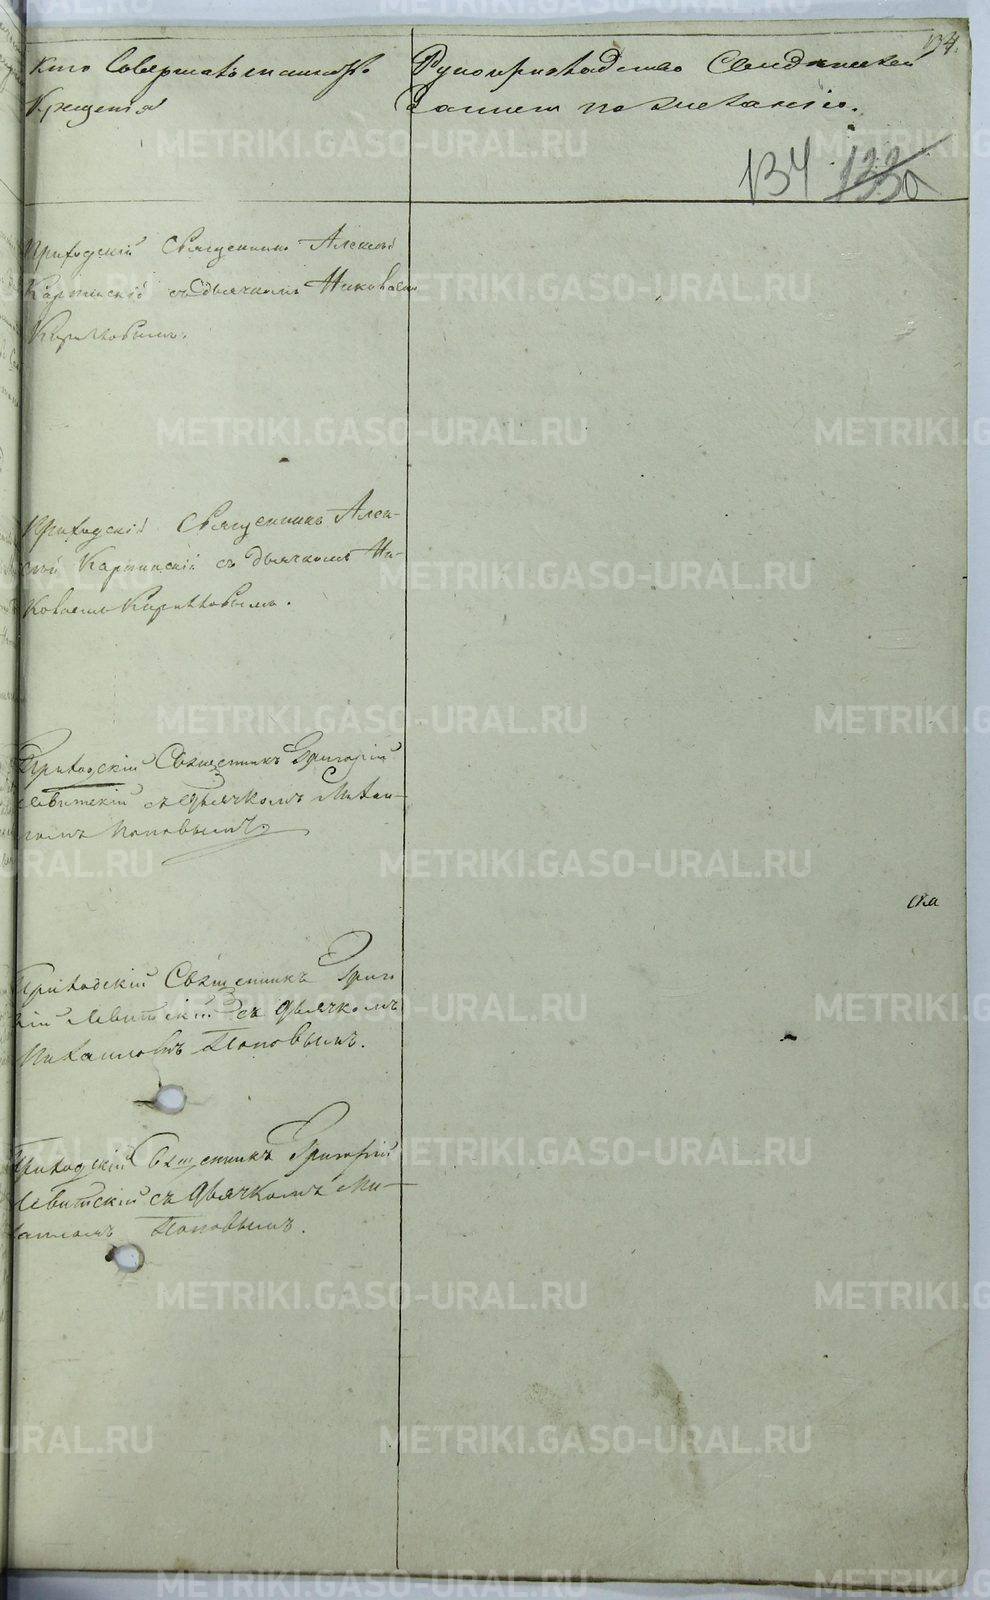 134.
Кто Совершалъ таинство
Крещенія
Рукоприкладство Свидѣтелей
записи по желанію.
134 133а
Приходскій Священникъ Алексѣй
Карпинскій съ дьячкомъ Николаемъ
Кирилловымъ.
Приходскій Священникъ Алек-
сѣй Карпинскій съ дьячкомъ Ни-
колаемъ Кирилловымъ.
Приходскій Священникъ Григорій
Левитскій съ Дьячкомъ Михаи-
ломъ Поповымъ.
Приходскій Священникъ Григо
рій Левитскій съ Дьячкомъ
Михаиломъ Поповымъ.
Приходскій Священникъ Григорій
Левитскій съ Дьячкомъ Ми-
хаиломъ Поповымъ.
METRIKI.GASO-URAL.RU